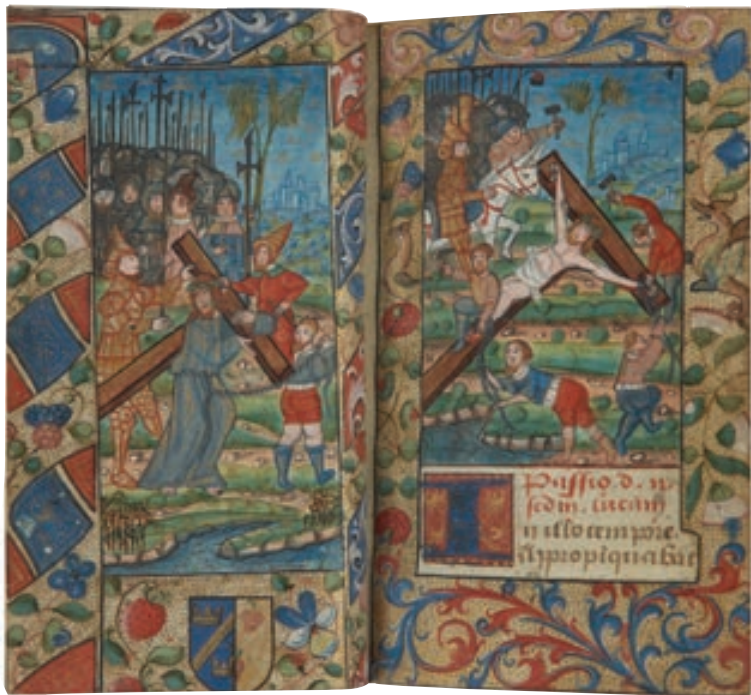 Passio d. n
scdm. lucam
n illo tempore.
Appropiquabat